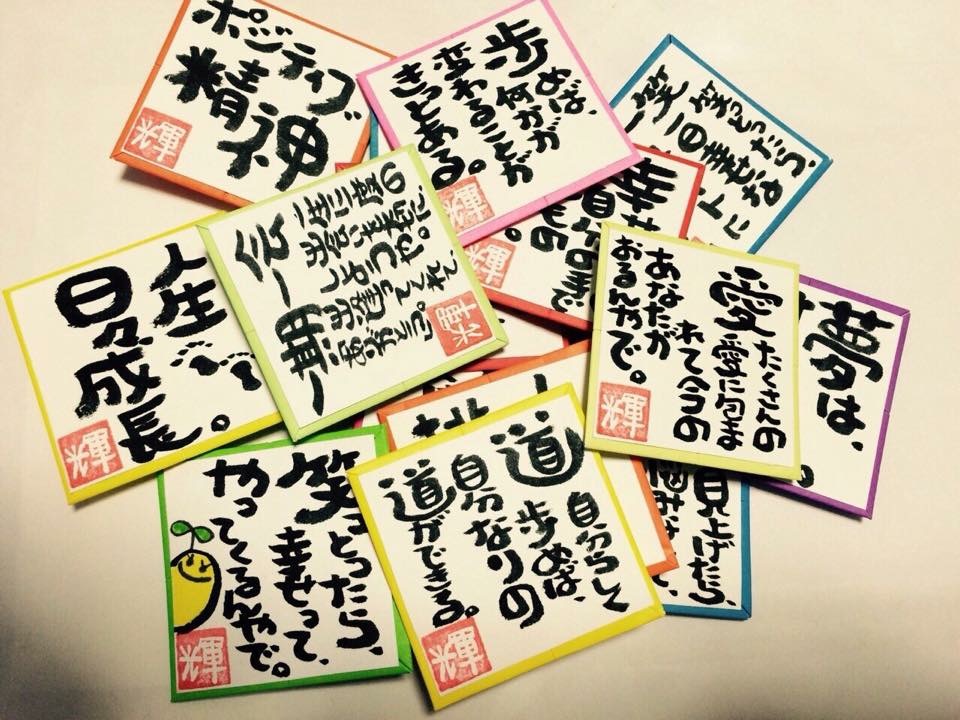 ポジティブ
精神
輝
歩めば、
何かが
変わることが
きっとある。
輝
笑っとったら、
一日幸せな
幸せ
自分の
輝
一期一会
一生に一度の
出会いを大切に
しようや。
出逢ってくれて、
ありがとう。
輝
愛
たくさんの
愛に包ま
れて今の
あなたが
おるんやで。
輝
夢は、
人生
日々成長。
輝
笑っとったら、
幸せって、
やってくるんやで。
輝
道
自分らしく
歩めば、
自分なりの
道ができる。
輝
見上げたら、
悩み